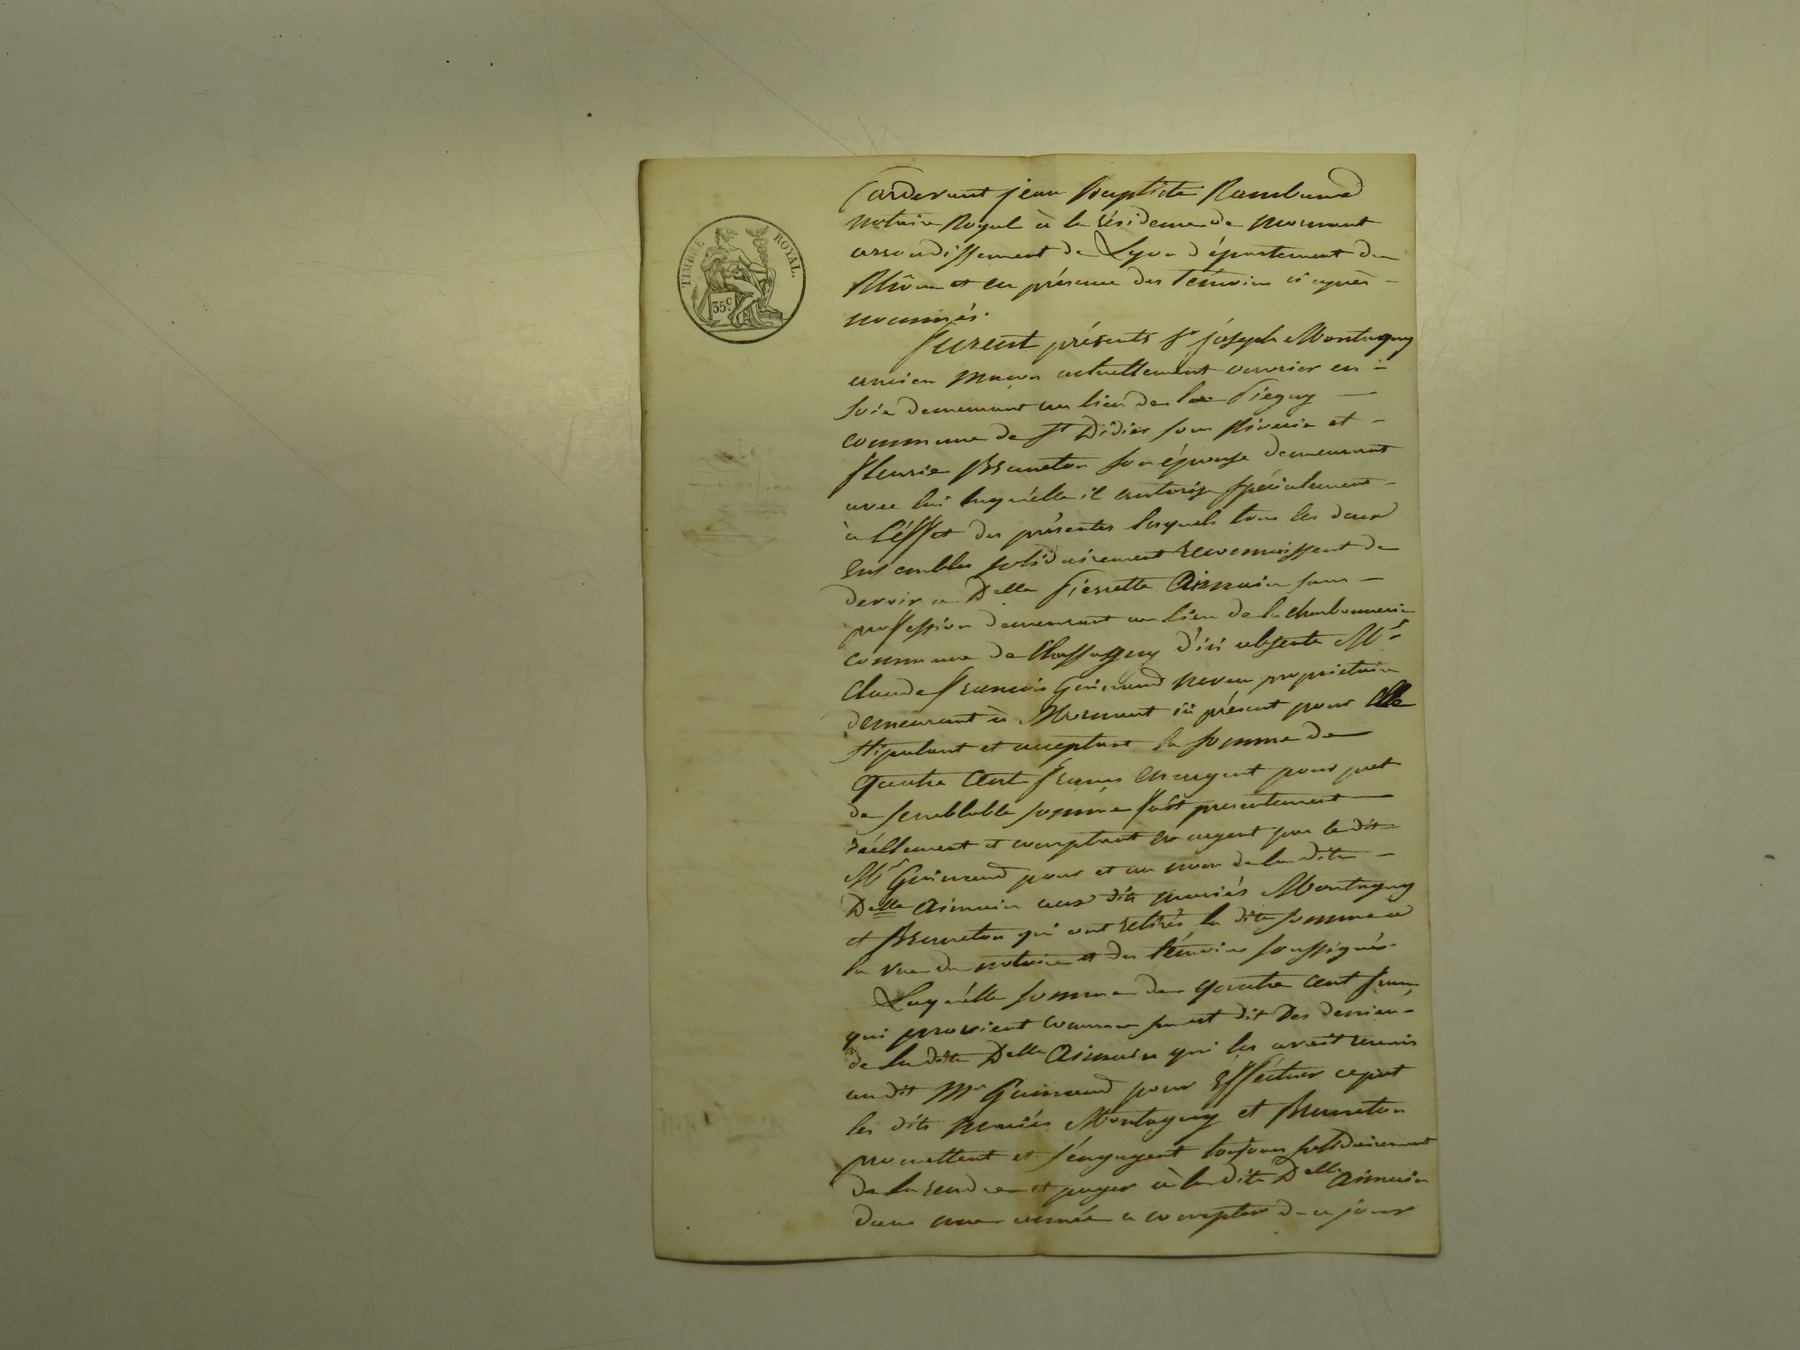 TIMBRE ROYAL.
35 c
Pardevant jean Baptiste Rambaud
notaire Royal à la résidence de Mornant
arrondissement de Lyon département du
Rhône et en présence des témoins ci après
nommés.
furent présents Sr joseph Montagny
ancien maçon actuellement ouvrier en
soie demeurant au lieu de
commune de St Didier sous Riverie et
fleurie Bruneton son épouse demeurant
avec lui laquelle il autorise spécialement
à l'éffet des présentes lesquels tous les deux
ensembles solidairement reconnoissent de
devoir a Delle pierrette Aimain sans
proffession demeurant au lieu de la charbonnerie
commune de Chassagny d'ici absente Mr
Claude françois Guinand neveu propriétaire
demeurant à Mornant ici présent pour elle
stipulant et acceptant la somme de
quatre cent francs en argent pour pret
de semblable somme fait presentement
réellement et comptant en argent par le dit
Mr Guinand pour et au nom de la dite
Delle Aimain aux dits mariés Montagny
et Bruneton qui ont retirés la dite somme a
la vue du notaire et des témoins soussignés
Laquélle somme de quatre cent francs
qui provient comme sus est dit des deniers
de la dite Delle Aimain qui les avait remis
au dit Mr Guinand pour éfféctuer ce pret
les dits mariés Montagny et Bruneton
promettent et s'engagent toujours solidairement
de la rendre et payer à la dite Delle Aimain
dans une année a compter de ce jour